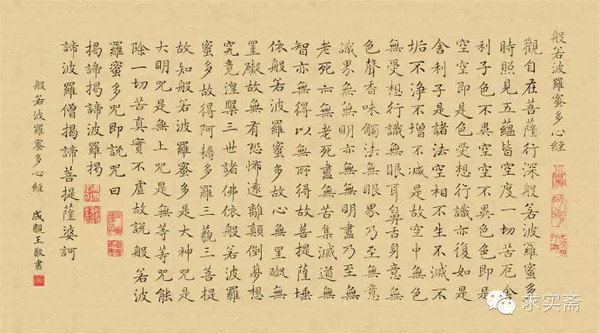 般若波羅蜜多心經
觀自在菩薩行深般若波羅蜜多
時照見五蘊皆空度一切苦厄舍
利子色不異空空不異色色即是
空空即是色受想行識亦復如是
舍利子是諸法空相不生不滅不
垢不淨不增不減是故空中無色
無受想行識無眼耳鼻舌身意無
色聲香味觸法無眼界乃至無意
識界無無明亦無無明盡乃至無
老死亦無老死盡無苦集滅道無
智亦無得以無所得故菩提薩埵
依般若波羅蜜多故心無罣礙無
罣礙故無有恐怖遠離顛倒夢想
究竟涅槃三世諸佛依般若波羅
蜜多故得阿耨多羅三藐三菩提
故知般若波羅蜜多是大神咒是
大明咒是無上咒是無等等咒能
除一切苦真實不虛故說般若波
羅蜜多咒即說咒曰
揭諦揭諦波羅揭
諦波羅僧揭諦菩提薩婆訶
般若波羅蜜多心經 成親王敬書
求实斋